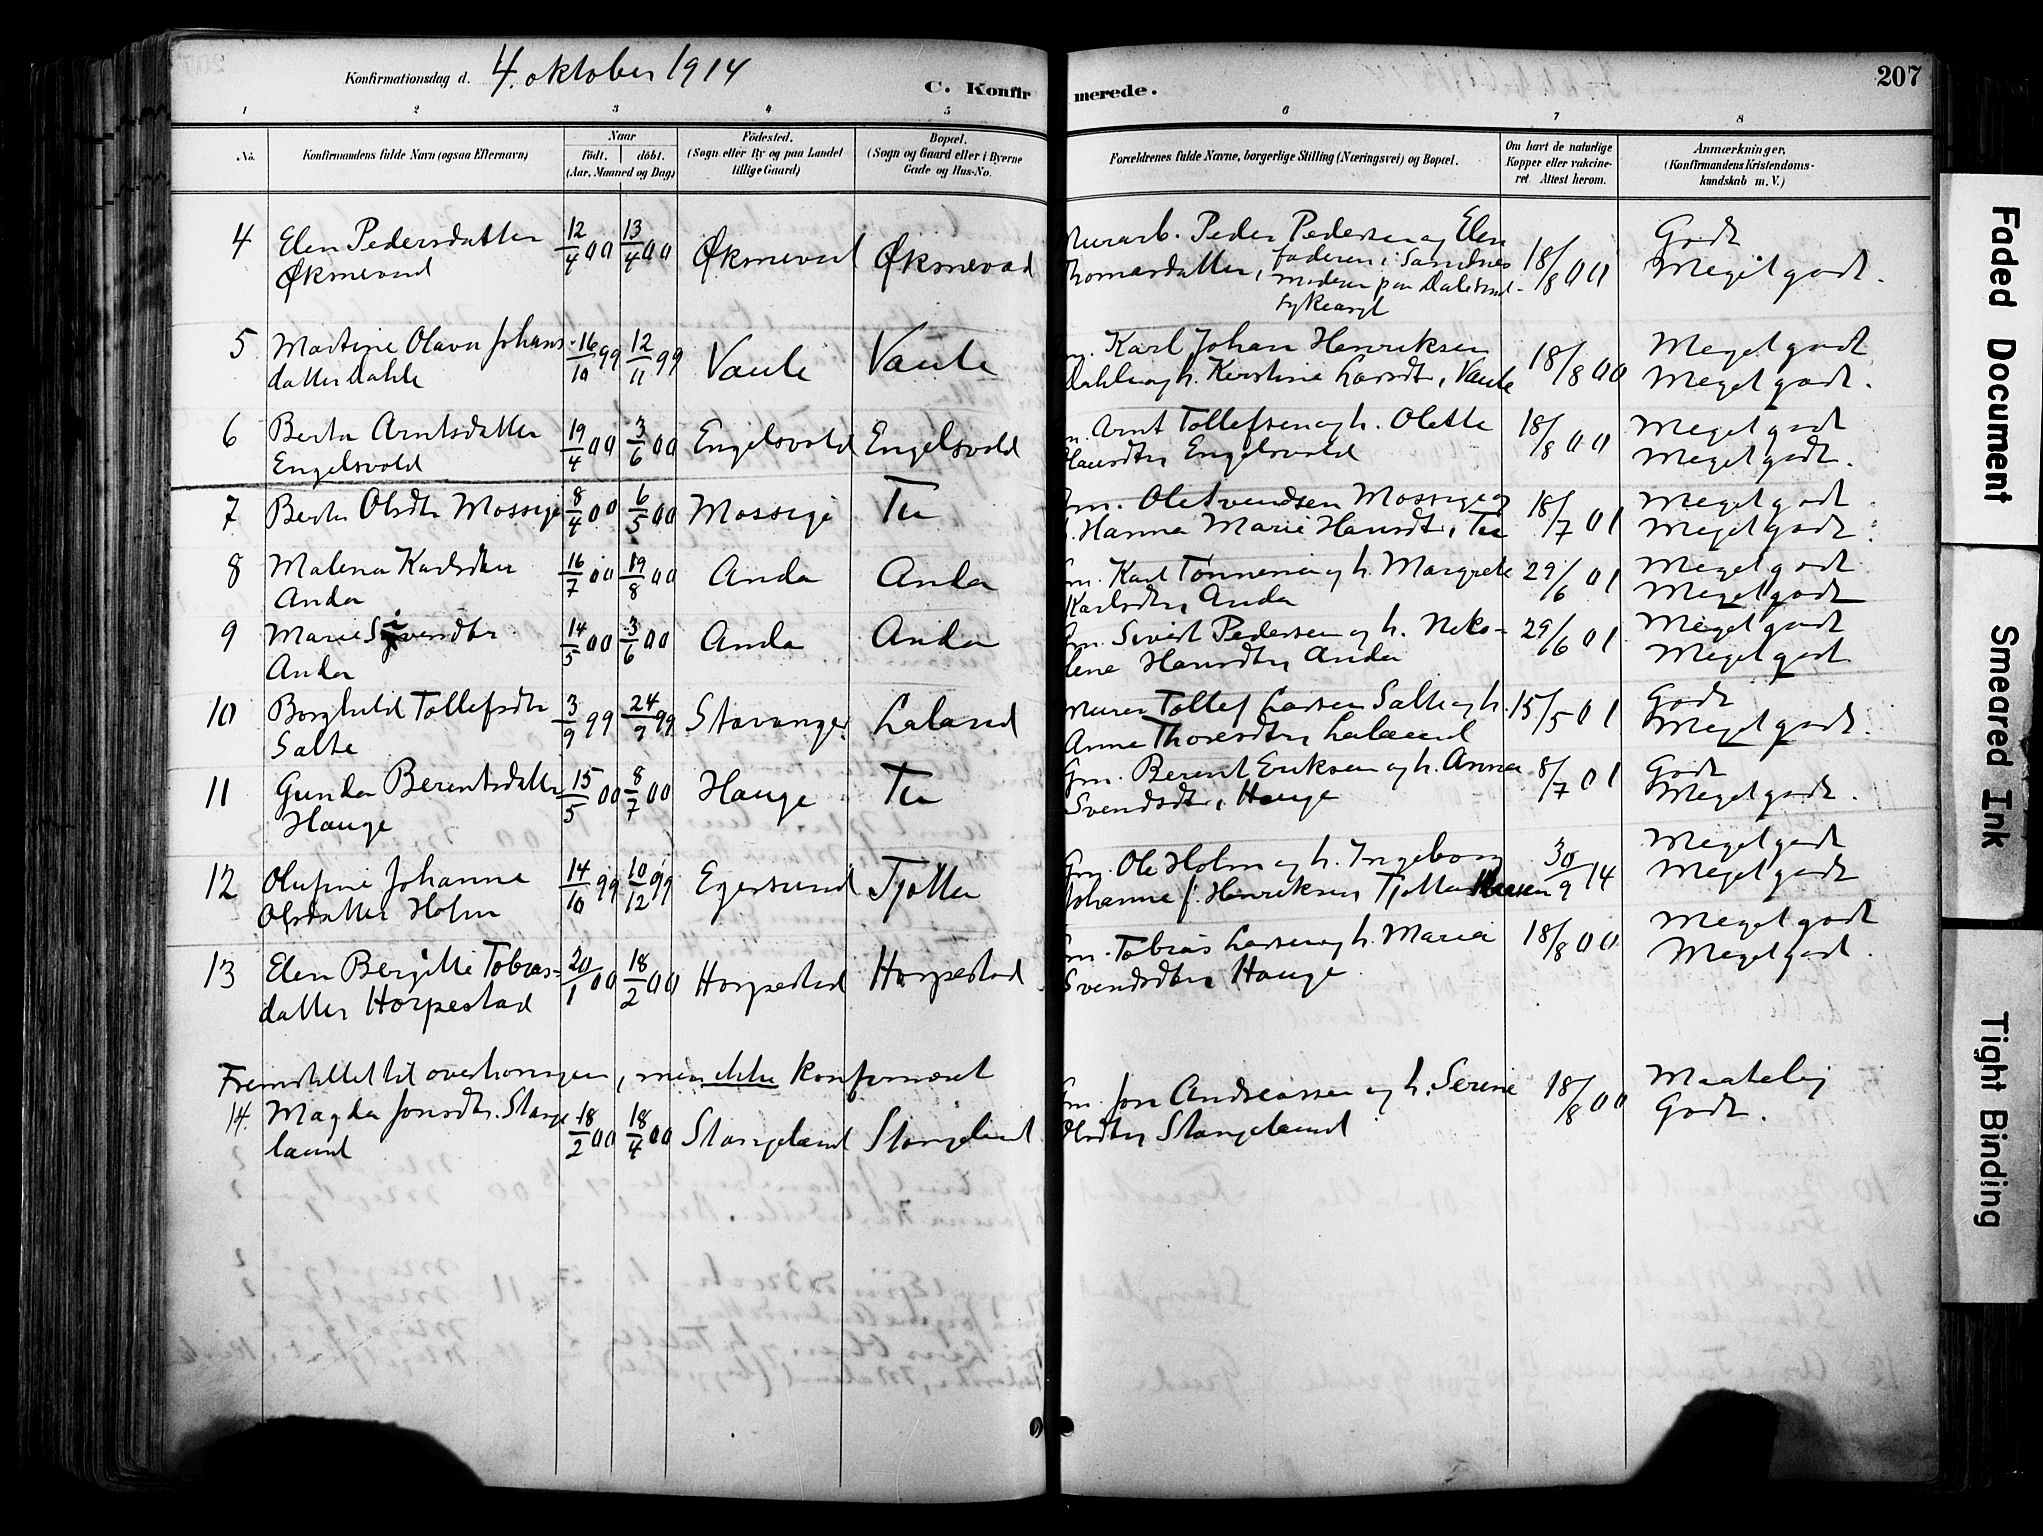 Konfirmationsdag d. 4. oktober 1914
C. Konfir
merede.
207
1 2 3 4 5 6 7 8
No.
Konfirmandens fulde Navn (ogsaa Efternavn)
Naar
födt. döbt.
(Aar, Maaned og Dag)
Födested.
(Sogn eller By og paa Landet
tillige Gaard)
Bopæl.
(Sogn og Gaard eller i Byerne
Gade og Hus-No.
Forældrenes fulde Navne, borgerlige Stilling (Næringsvei) og Bopæl.
Om havt de naturlige
Kopper eller vakcine-
ret. Attest herom.
Anmærkninger,
(Konfirmandens Kristendoms-
kundskab m. V.)
4 Elen Pedersdatter 12/4 00 13/4 00 Øksnevad Øksnevad Murarb. Peder Pedersen og Elen 18/8 00 Godt
Øksnevad Thomasdatter, faderen i Sandnes Meget godt.
moderen paa Dale sind-
sykeasyl
5 Martine Olava Johans 16/10 99 12/11 99 Vaule Vaule Karl Johan Henriksen 18/8 00 Meget godt
datter Dahle Dahle og h. Kirstine Larsdtr, Vaule Meget godt.
6 Berta Arntsdatter 19/4 00 3/6 00 Engelsvold Engelsvold Arnt Tollefsen og h. Olette 18/8 00 Meget godt
Engelsvold Hansdtr, Engelsvold Meget godt.
7 Berta Olsdtr Mossige 8/4 00 6/5 00 Mossige Tu Gm. Ole Svendsen Mossige og 18/7 01 Meget godt
h. Hanna Marie Hansdtr, Tu Meget godt.
8 Malena Karlsdtr 16/7 00 19/8 00 Anda Anda Gm. Karl Tønnesen og h. Margrete 29/6 01 Meget godt
Anda Karlsdtr, Anda Meget godt
9 Marie Sivertsdtr 14/5 00 3/6 00 Anda Anda Gm. Sivert Pedersen og h. Niko- 29/6 01 Meget godt
Anda line Hansdtr, Anda Meget godt
10 Borghild Tollefsdtr 3/9 99 24/9 99 Stavanger Laland Murer Tollef Larsen Salte og h. 15/5 01 Godt
Salte Anne Thoresdtr, Laland Meget godt.
11 Gunda Berentsdatter 15/5 00 8/7 00 Hauge Tu Gm. Berent Eriksen og h. Anna 8/7 01 Godt
Hauge Svendsdtr, Hauge Meget godt.
12 Olufine Johanne 14/10 99 10/12 99 Egersund Tjøtta Gm. Ole Holm og h. Ingeborg 30/9 14 Meget godt
Olsdatter Holm Johanne f. Henriksen, Tjøtta Meget godt
13 Elen Bergitte Tobias- 20/1 00 18/2 00 Horpestad Horpestad Gm. Tobias Larsen og h. Maria 18/8 00 Meget godt
datter Horpestad Svendsdtr, Hauge Meget godt.
Fremstillet til overhøringen, men ikke konfirmeret
14. Magda Jonsdtr. Stange 18/2 00 18/4 00 Stangeland Stangeland Gm. Jon Andreassen og h. Serine 18/8 00 Maatelig
land Olsdtr, Stangeland Godt.
Faded Document
Smeared Ink
Tight Binding